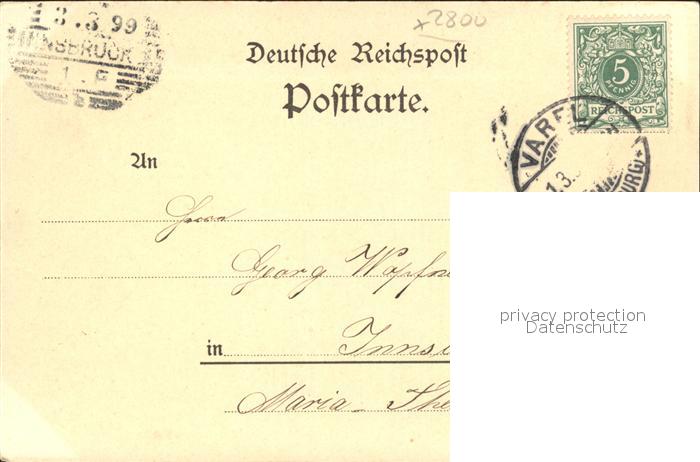 3.3.99
INNSBRUCK
1
x2800
Deutsche Reichspost
Postkarte.
5
PFENNIG
REICHSPOST
VAREL
1.3.
BURG
An
Herrn
Georg
in Inns
Maria The
privacy protection
Datenschutz